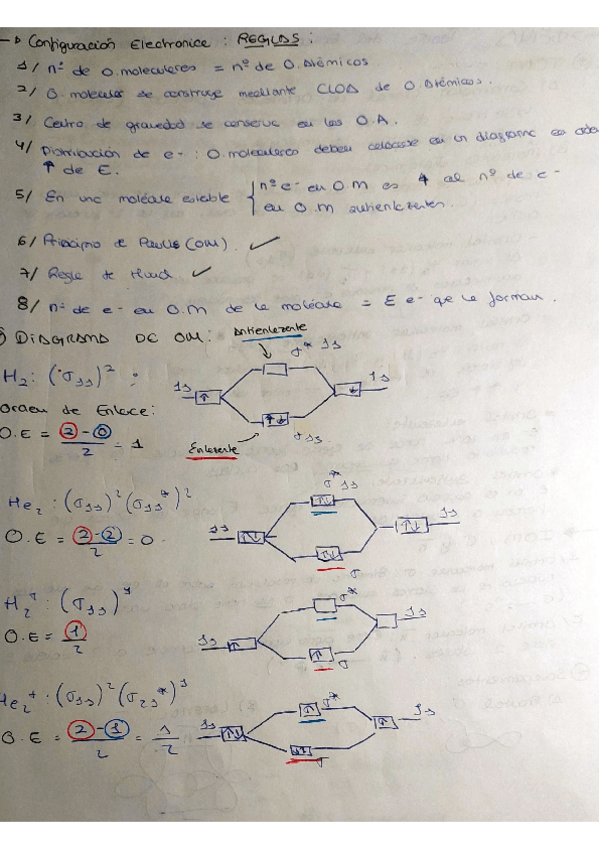 → Configuración Electronica : REGLAS :
1/ nº de O. moleculares = nº de O. Atómicos
2/ O. molecular se construye mediante CLOA de O. Atómicos.
3/ Centro de gravedad se conserva en los O.A.
4/ Distribución de e- : O. moleculares deben colocarse en un diagrama en orden
↑ de E.
5/ En una molécula estable { nº e- en O.M es ↑ al nº de e-
en O.M antienlazantes.
6/ Principio de Pauli (OM). ✓
7/ Regla de Hund ✓
8/ nº de e- en O.M de la molécula = E e- que la forman.
DIAGRAMA DE OM:
Antienlazante
σ* 1s
H2: (σ1s)² :
1s ↑
↓ 1s
Orden de Enlace:
↑↓
σ1s
O.E = 2-0/2 = 1
Enlazante
He2 : (σ1s)² (σ1s*)²
σ* 1s
↑↓
1s ↑↓
↑↓ 1s
O.E = 2-2/2 = 0.
↑↓
σ
H2+ : (σ1s)¹
σ*
1s
O.E = 1/2
1s ↑
↑ σ
He2+ : (σ1s)² (σ2s*)¹
↑ σ*
1s
O.E = 2-1/2 = 1/2
1s ↑↓
↑
↑↓ σ